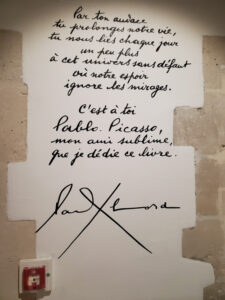 Par ton audace
tu prolonges notre vie,
tu nous lies chaque jour
un peu plus
à cet univers sans défaut
où notre espoir
ignore les mirages.
C'est à toi
Pablo Picasso,
mon ami sublime,
que je dédie ce livre.
Paul Eluard